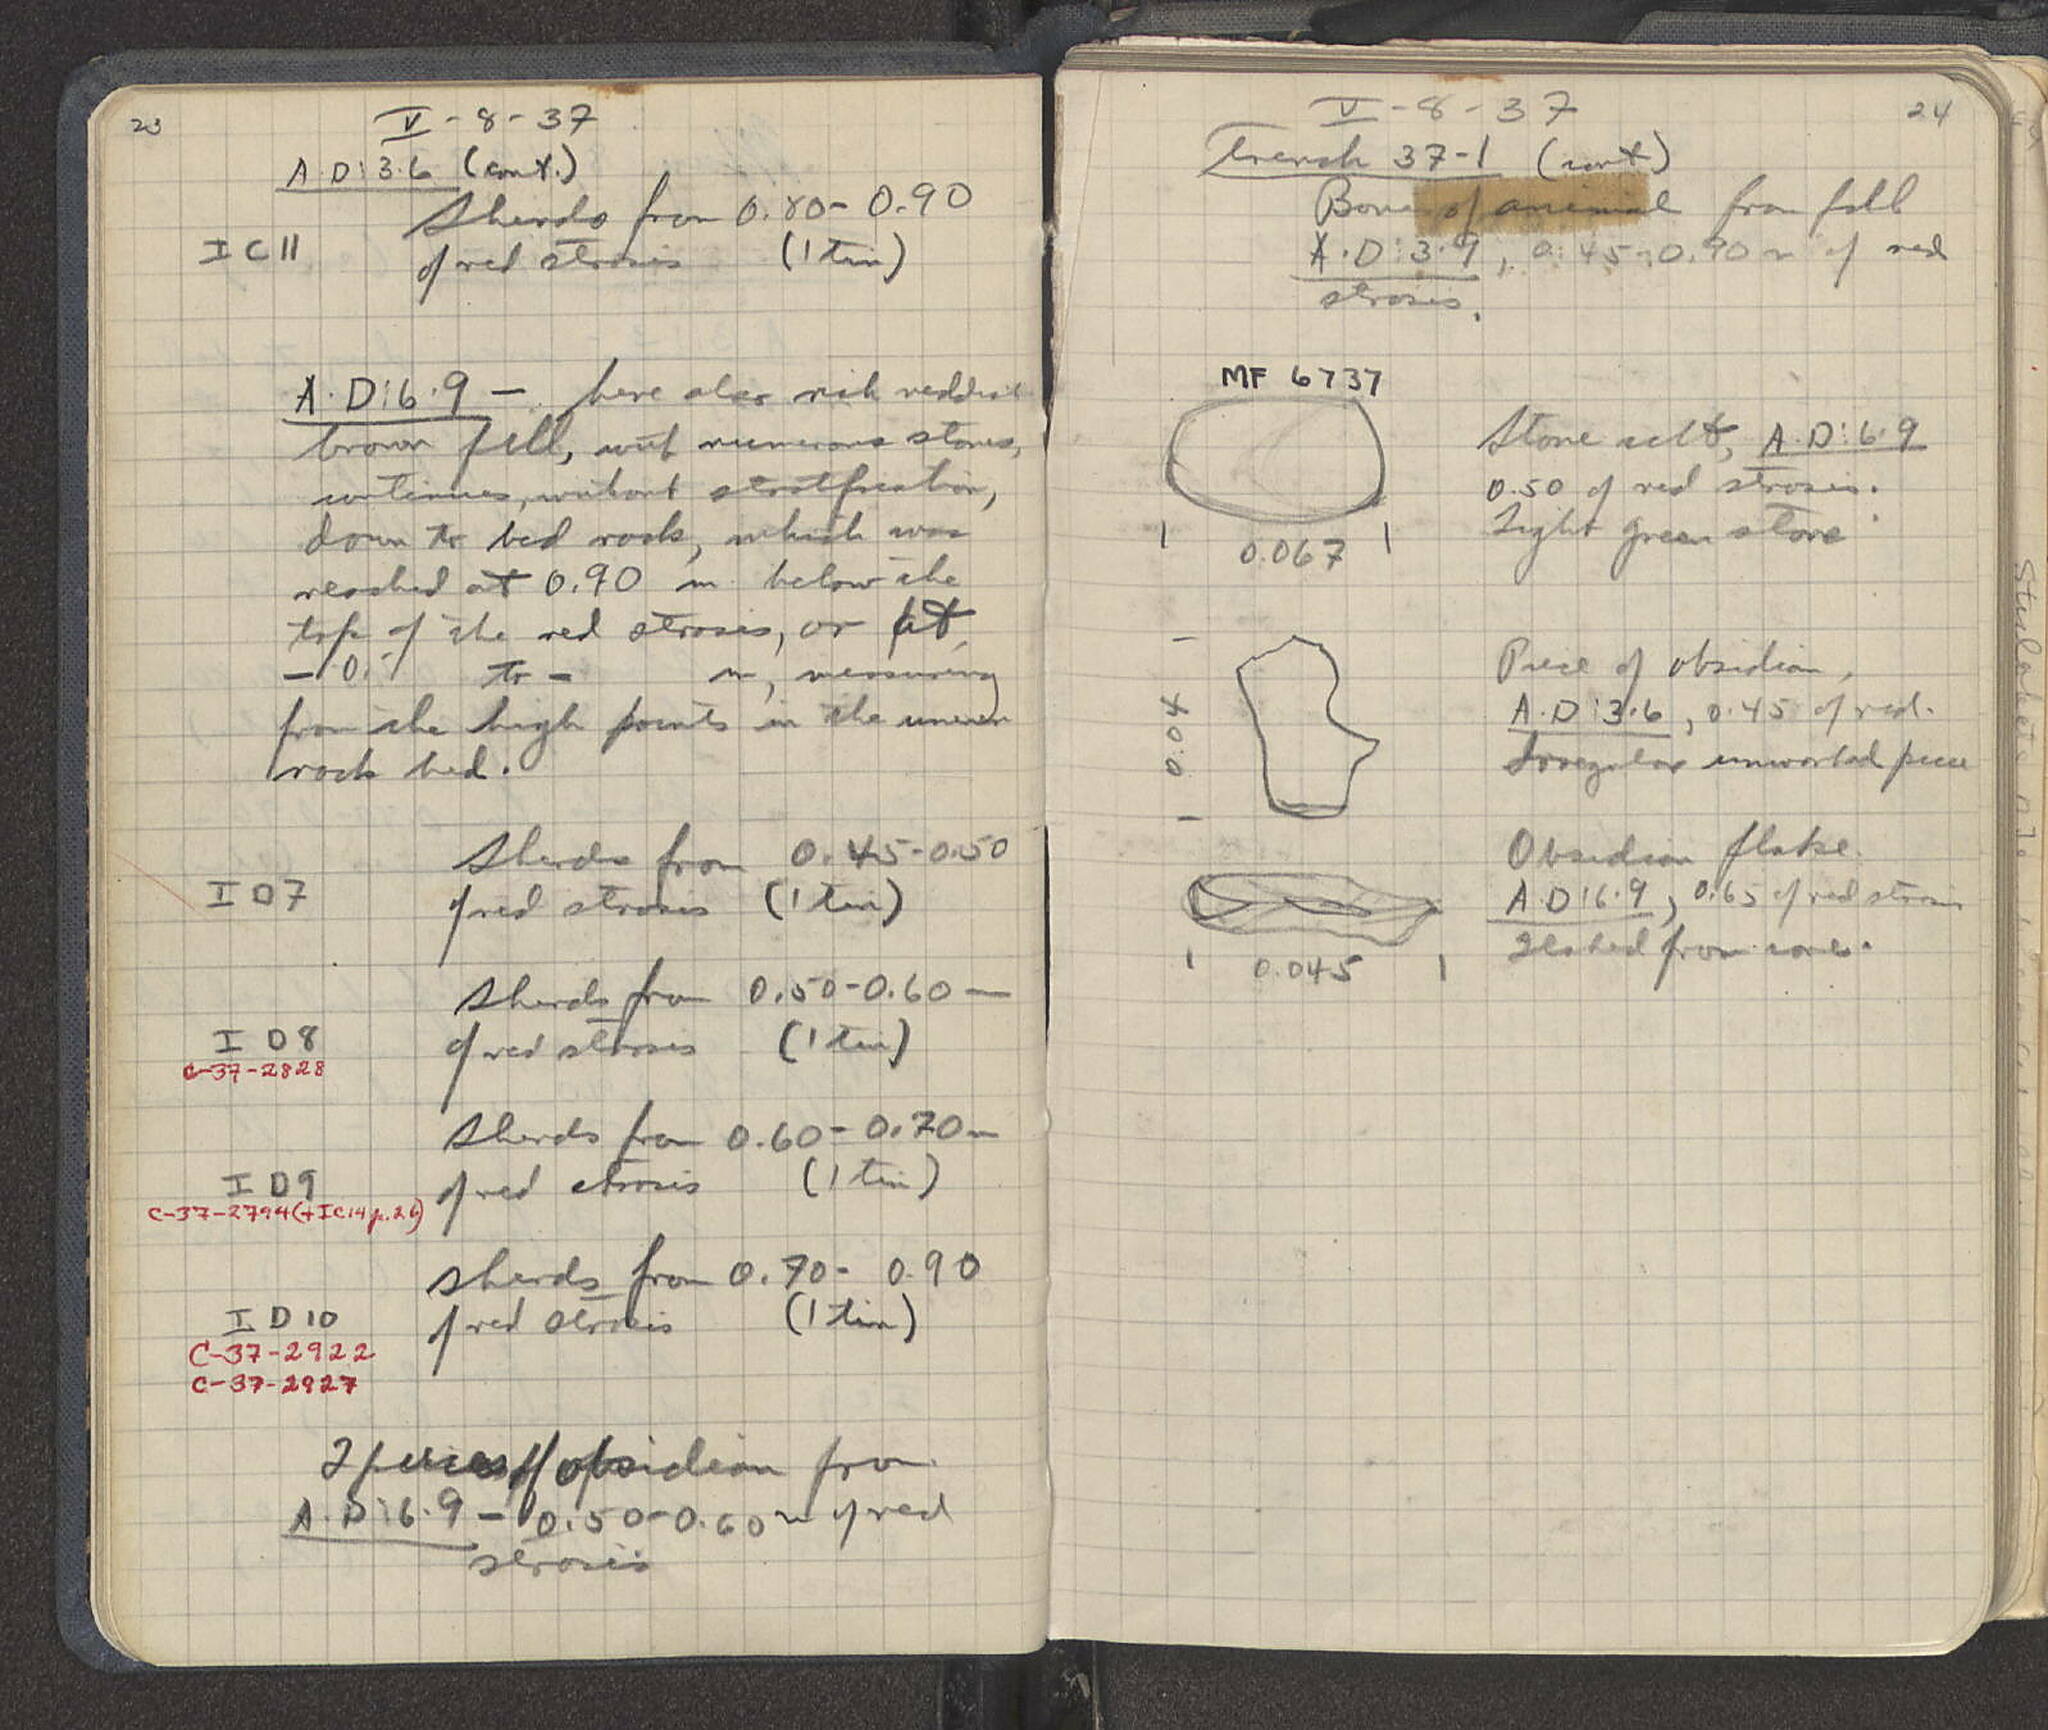 23
V-8-37
A.D:3.6 (cont.)
Sherds from 0.80-0.90
I C 11
of red strosis (1 tin)
A.D:6.9 - here also rich reddish
brown fill, with numerous stones,
continues, without stratification,
down to bed rock, which was
reached at 0.90 m below the
top of the red strosis, or at
- 0. to - m, measuring
from the high points in the uneven
rock bed.
Sherds from 0.45-0.50
I D7
of red strosis (1 tin)
Sherds from 0.50-0.60 m
I D8
of red strosis (1 tin)
C-37-2828
Sherds from 0.60-0.70 m
I D9
of red strosis (1 tin)
C-37-2794 (+IC14 p.26)
Sherds from 0.70-0.90
I D10
of red strosis (1 tin)
C-37-2922
C-37-2927
2 pieces of obsidian from
A.D:6.9 - 0.50-0.60 m of red
strosis
24
V-8-37
Trench 37-1 (cont)
Bones of animal from fill
A.D:3.9, 0.45-0.90 m of red
strosis.
MF 6737
Stone celt, A.D:6.9
0.50 of red strosis.
Light green stone
0.067
Piece of obsidian,
A.D:3.6, 0.45 of red.
Irregular unworked piece
0.04
Obsidian flake.
A.D:6.9, 0.65 of red strosis
Flaked from core.
0.045